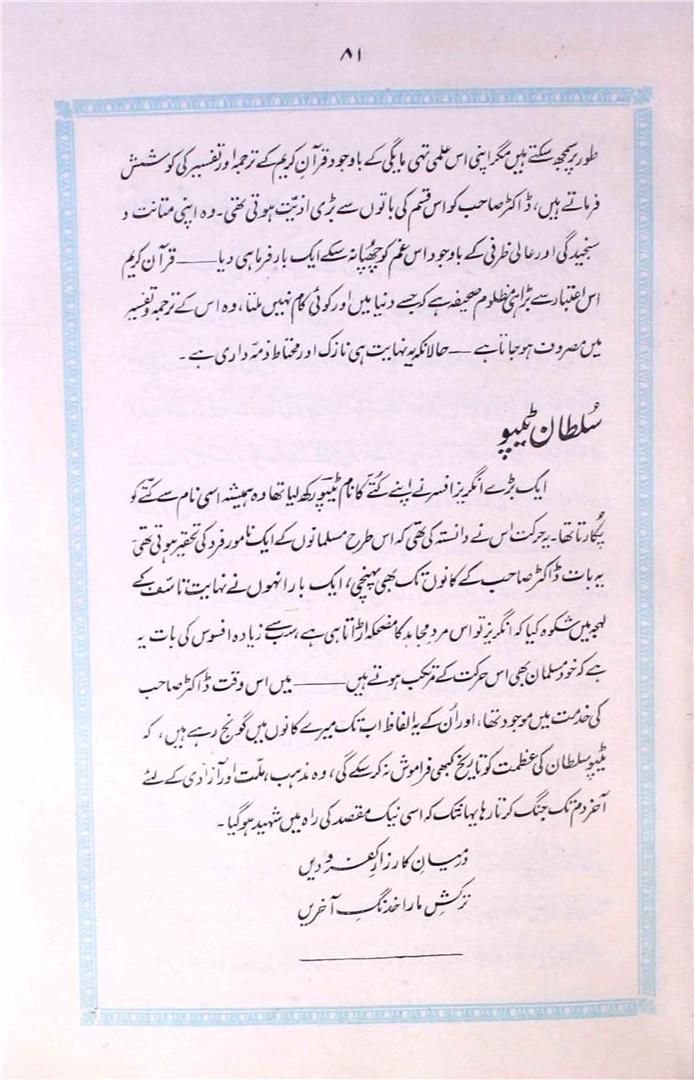 ۸۱
طور پر سمجھ سکتے ہیں مگر اپنی اس علمی تہی مایگی کے باوجود قرآن کریم کے ترجمہ اور تفسیر کی کوشش
فرماتے ہیں، ڈاکٹر صاحب کو اس قسم کی باتوں سے بڑی اذیّت ہوتی تھی۔ وہ اپنی متانت و
سنجیدگی اور عالی ظرفی کے باوجود اس غم کو چھپا نہ سکے ایک بار فرما ہی دیا —— قرآن کریم
اس اعتبار سے بڑا ہی مظلوم صحیفہ ہے کہ جسے دنیا میں اور کوئی کام نہیں ملتا، وہ اس کے ترجمہ و تفسیر
میں مصروف ہو جاتا ہے —— حالانکہ یہ نہایت ہی نازک اور محتاط ذمّہ داری ہے۔
سُلطان ٹیپو
ایک بڑے انگریز افسر نے اپنے کُتّے کا نام ٹیپو رکھ لیا تھا وہ ہمیشہ اسی نام سے کتّے کو
پُکارتا تھا۔ یہ حرکت اس نے دانستہ کی تھی کہ اس طرح مسلمانوں کے ایک نامور فرد کی تحقیر ہوتی تھی
یہ بات ڈاکٹر صاحب کے کانوں تک بھی پہنچی، ایک بار انہوں نے نہایت تاسّف کے
لہجہ میں شکوہ کیا کہ انگریز تو اس مردِ مجاہد کا مضحکہ اڑاتا ہی ہے، سب سے زیادہ افسوس کی بات یہ
ہے کہ خود مسلمان بھی اس حرکت کے مرتکب ہوتے ہیں —— میں اس وقت ڈاکٹر صاحب
کی خدمت میں موجود تھا، اور اُن کے یہ الفاظ اب تک میرے کانوں میں گونج رہے ہیں، کہ
ٹیپو سلطان کی عظمت کو تاریخ کبھی فراموش نہ کر سکے گی، وہ مذہب، ملّت اور آزادی کے لئے
آخر دم تک جنگ کرتا رہا یہانتک کہ اسی نیک مقصد کی راہ میں شہید ہو گیا۔
درمیانِ کارزارِ کفر و دیں
ترکشِ مارا خدنگِ آخریں